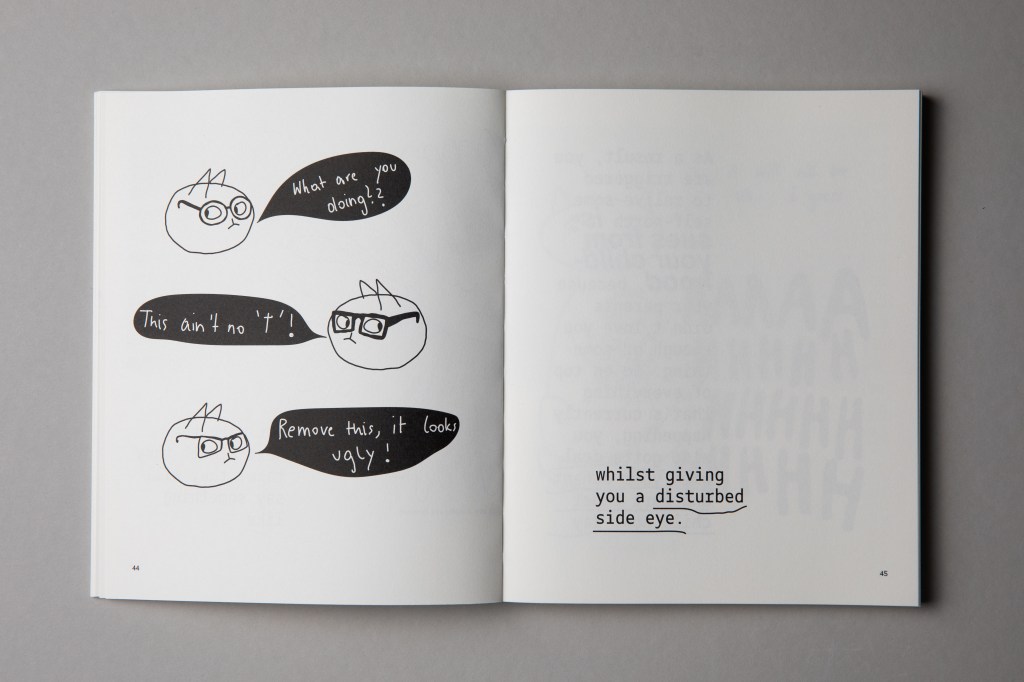 What are you
doing??
This ain't no 'T'!
Remove this, it looks
ugly!
44
whilst giving
you a disturbed
side eye.
45